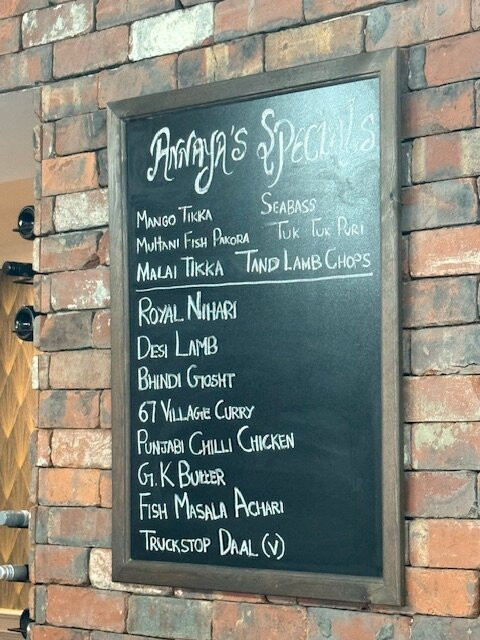 ANNAYA'S SPECIALS
MANGO TIKKA SEABASS
MULTANI FISH PAKORA TUK TUK PURI
MALAI TIKKA TAND LAMB CHOPS
ROYAL NIHARI
DESI LAMB
BHINDI GOSHT
67 VILLAGE CURRY
PUNJABI CHILLI CHICKEN
G.K BUTTER
FISH MASALA ACHARI
TRUCKSTOP DAAL (V)